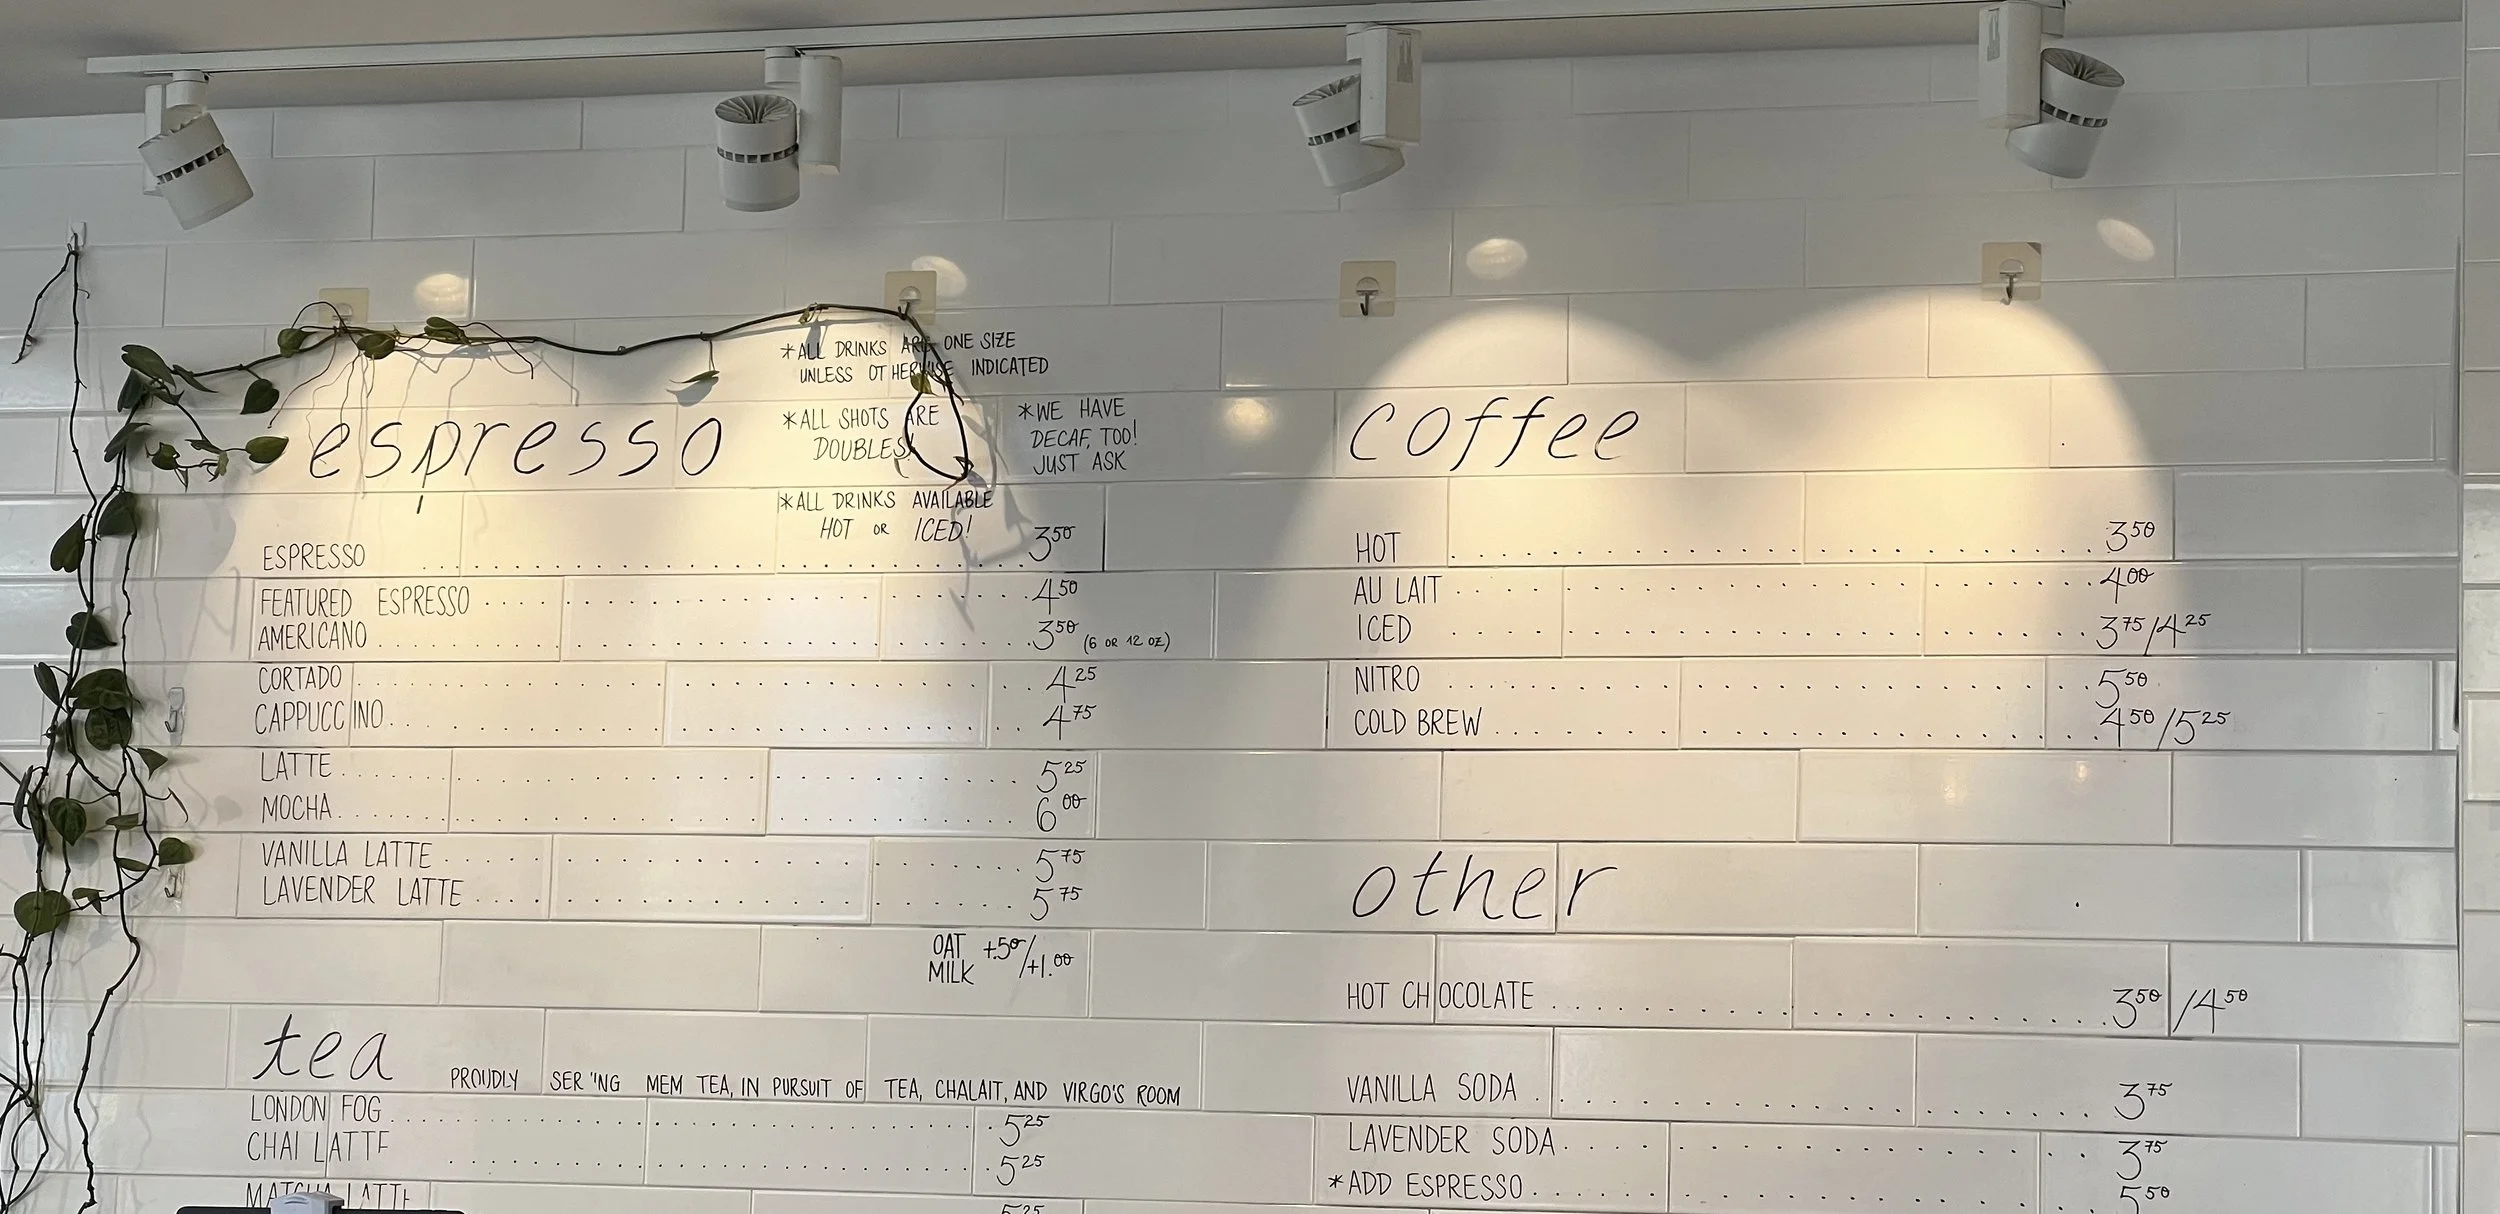 *ALL DRINKS ARE ONE SIZE
UNLESS OTHERWISE INDICATED
espresso
*ALL SHOTS ARE
DOUBLES!
*WE HAVE
DECAF, TOO!
JUST ASK
*ALL DRINKS AVAILABLE
HOT OR ICED!
ESPRESSO 3 50
FEATURED ESPRESSO 4 50
AMERICANO 3 50 (6 OR 12 OZ)
CORTADO 4 25
CAPPUCCINO 4 75
LATTE 5 25
MOCHA 6 00
VANILLA LATTE 5 75
LAVENDER LATTE 5 75
OAT MILK +.50/+1.00
tea
PROUDLY SER ING MEM TEA, IN PURSUIT OF TEA, CHALAIT, AND VIRGO'S ROOM
LONDON FOG 5 25
CHAI LATTE 5 25
MATCHA LATTE 5 25
coffee
HOT 3 50
AU LAIT 4 00
ICED 3 75/4 25
NITRO 5 50
COLD BREW 4 50/5 25
other
HOT CHOCOLATE 3 50/4 50
VANILLA SODA 3 75
LAVENDER SODA 3 75
*ADD ESPRESSO 5 50